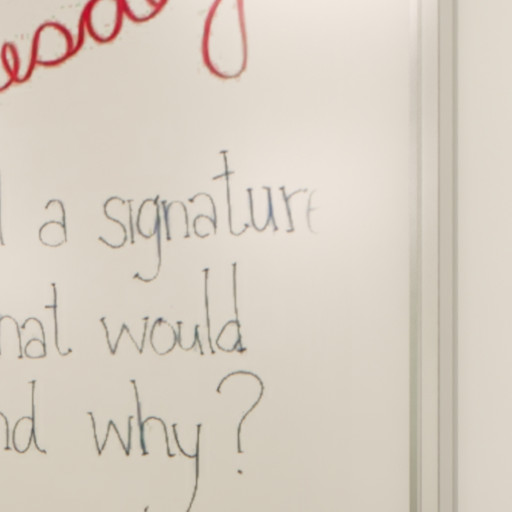 esday
a signature
hat would
nd why?